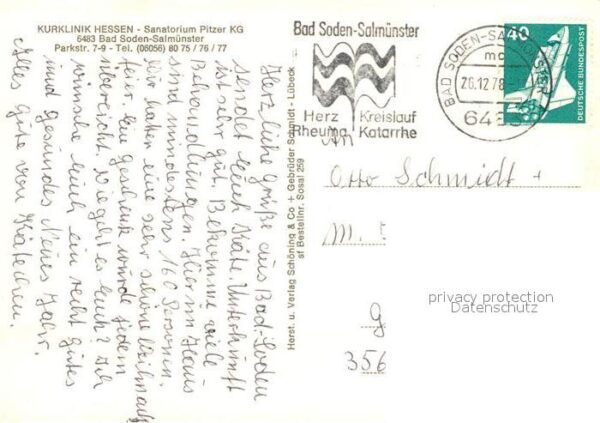 KURKLINIK HESSEN - Sanatorium Pitzer KG
6483 Bad Soden-Salmünster
Parkstr. 7-9 - Tel. (06056) 80 75 / 76 / 77
Herzliche Grüße aus Bad-Soden
sendet Euch Käte. Unterkunft
ist sehr gut. Bekomme viele
Behandlungen. Hier im Haus
sind mindestens 160 Personen.
Wir hatten eine sehr schöne Weihnachts
feier. Ein Geschenk wurde jedem
überreicht. Wie geht es Euch? Ich
wünsche Euch ein recht gutes
und gesundes Neues Jahr.
Alles gute von Kätechen.
Herst. u. Verlag Schöning & Co + Gebrüder Schmidt - Lübeck
Bestellnr. Sosal 259
Bad Soden-Salmünster
Herz Kreislauf
Rheuma Katarrhe
BAD SODEN-SALMÜNSTER
mc
26.12.78
6483
40
DEUTSCHE BUNDESPOST
An
Otto Schmidt +
g
356
privacy protection
Datenschutz